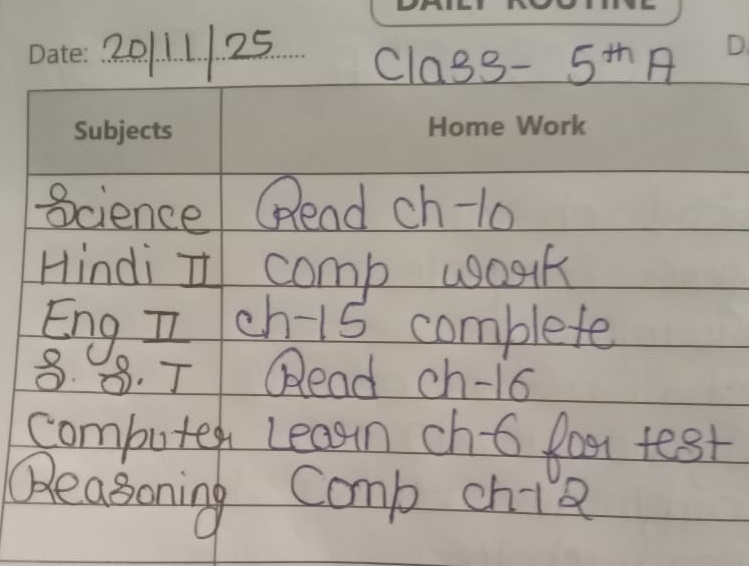 DAILY ROUTINE
Date: 20/11/25
Class- 5th A
Subjects Home Work
Science Read ch-10
Hindi II comp work
Eng II ch-15 complete
S. S. T Read ch-16
Computer Learn ch-6 for test
Reasoning Comp ch-12